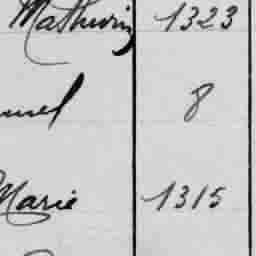 Mathurin 1323
8
Marie 1315